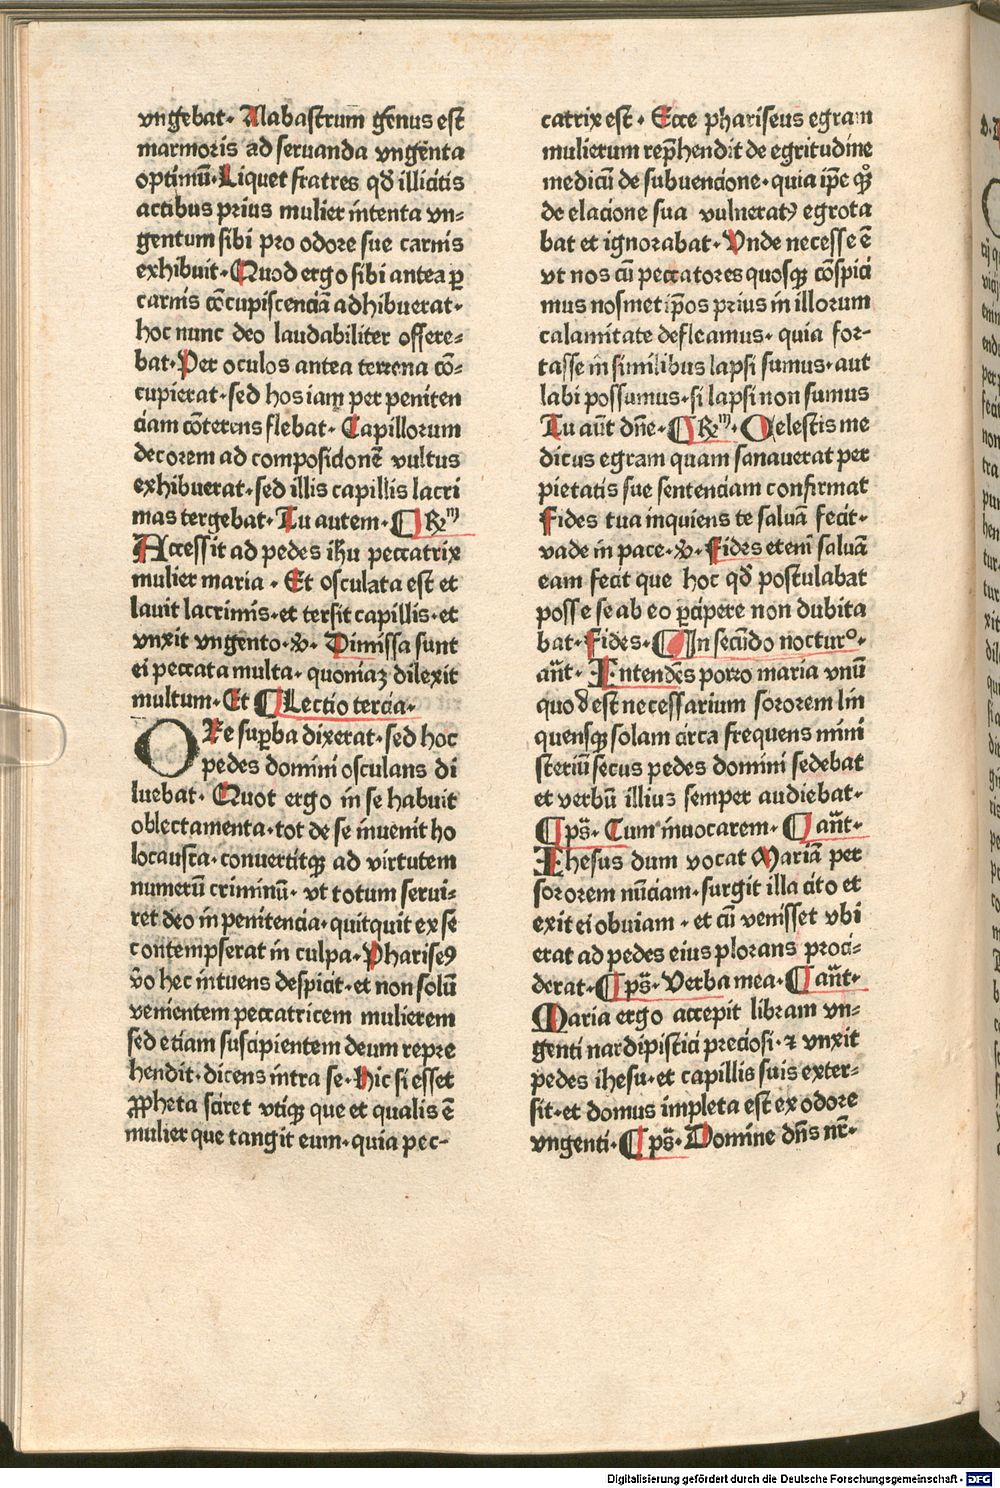 vngebat· Alabastrum genus est
marmoris ad seruanda vngenta
optimū·Liquet fratres qđ illicitis
actibus prius mulier intenta vn⸗
gentum sibi pro odore sue carnis
exhibuit·Quod ergo sibi antea ꝑ
carnis cōcupiscenciā adhibuerat·
hoc nunc deo laudabiliter offere⸗
bat·Per oculos antea terrena cō⸗
cupierat·sed hos iam per peniten
ciam cōterens flebat· Capillorum
decorem ad composicionē vultus
exhibuerat·sed illis capillis lacri
mas tergebat·Tu autem·¶ Rm
Accessit ad pedes ihu peccatrix
mulier maria · Et osculata est et
lauit lacrimis·et tersit capillis·et
vnxit vngento·⁊· Dimissa sunt
ei peccata multa· quoniaꝫ dilexit
multum·Et ¶Lectio tercia·
ORe suꝑba dixerat·sed hoc
pedes domini osculans di
luebat· Quot ergo in se habuit
oblectamenta·tot de se inuenit ho
locausta·conuertitqꝫ ad virtutem
numerū criminū· vt totum serui⸗
ret deo in penitencia·quitquit ex se
contempserat in culpa·Phariseꝰ
v̄o hec intuens despicit·et non solū
venientem peccatricem mulierem
sed etiam suscipientem deum repre
hendit·dicens intra se·Hic si esset
ꝓpheta sciret vtiqꝫ que et qualis ē
mulier que tangit eum·quia pec⸗
catrix est · Ecce phariseus egram
mulierum rep̄hendit de egritudine
medicū de subuencione·quia ip̄e qꝫ
de elacione sua vulneratꝰ egrota
bat et ignorabat·Vnde necesse ē
vt nos cū peccatores quosqꝫ cōspici
mus nosmet ip̄os prius in illorum
calamitate defleamus· quia for⸗
tasse in similibus lapsi sumus·aut
labi possumus·si lapsi non sumus
Tu aūt dn̄e·¶Rm·Celestis me
dicus egram quam sanauerat per
pietatis sue sentenciam confirmat
Fides tua inquiens te saluā fecit·
vade in pace·⁊·Fides etenī saluā
eam fecit que hoc qđ postulabat
posse se ab eo ꝑcipere non dubita
bat·Fides·¶In secūdo nocturº·
an̄t· Intendēs porro maria vnū
quod est necessarium sororem lin
quensqꝫ solam circa frequens mini
steriū secus pedes domini sedebat
et verbū illius semper audiebat·
¶ps̄· Cum inuocarem·¶an̄t·
Ihesus dum vocat Mariā per
sororem nūciam·surgit illa cito et
exit ei obuiam·et cū venisset vbi
erat ad pedes eius plorans proci⸗
derat·¶ps̄· Verba mea·¶an̄t·
Maria ergo accepit libram vn⸗
genti nardipistici preciosi·⁊ vnxit
pedes ihesu·et capillis suis exter⸗
sit·et domus impleta est ex odore
vngenti·¶ps̄·Domine dn̄s nr̄·
Digitalisierung gefördert durch die Deutsche Forschungsgemeinschaft - DFG